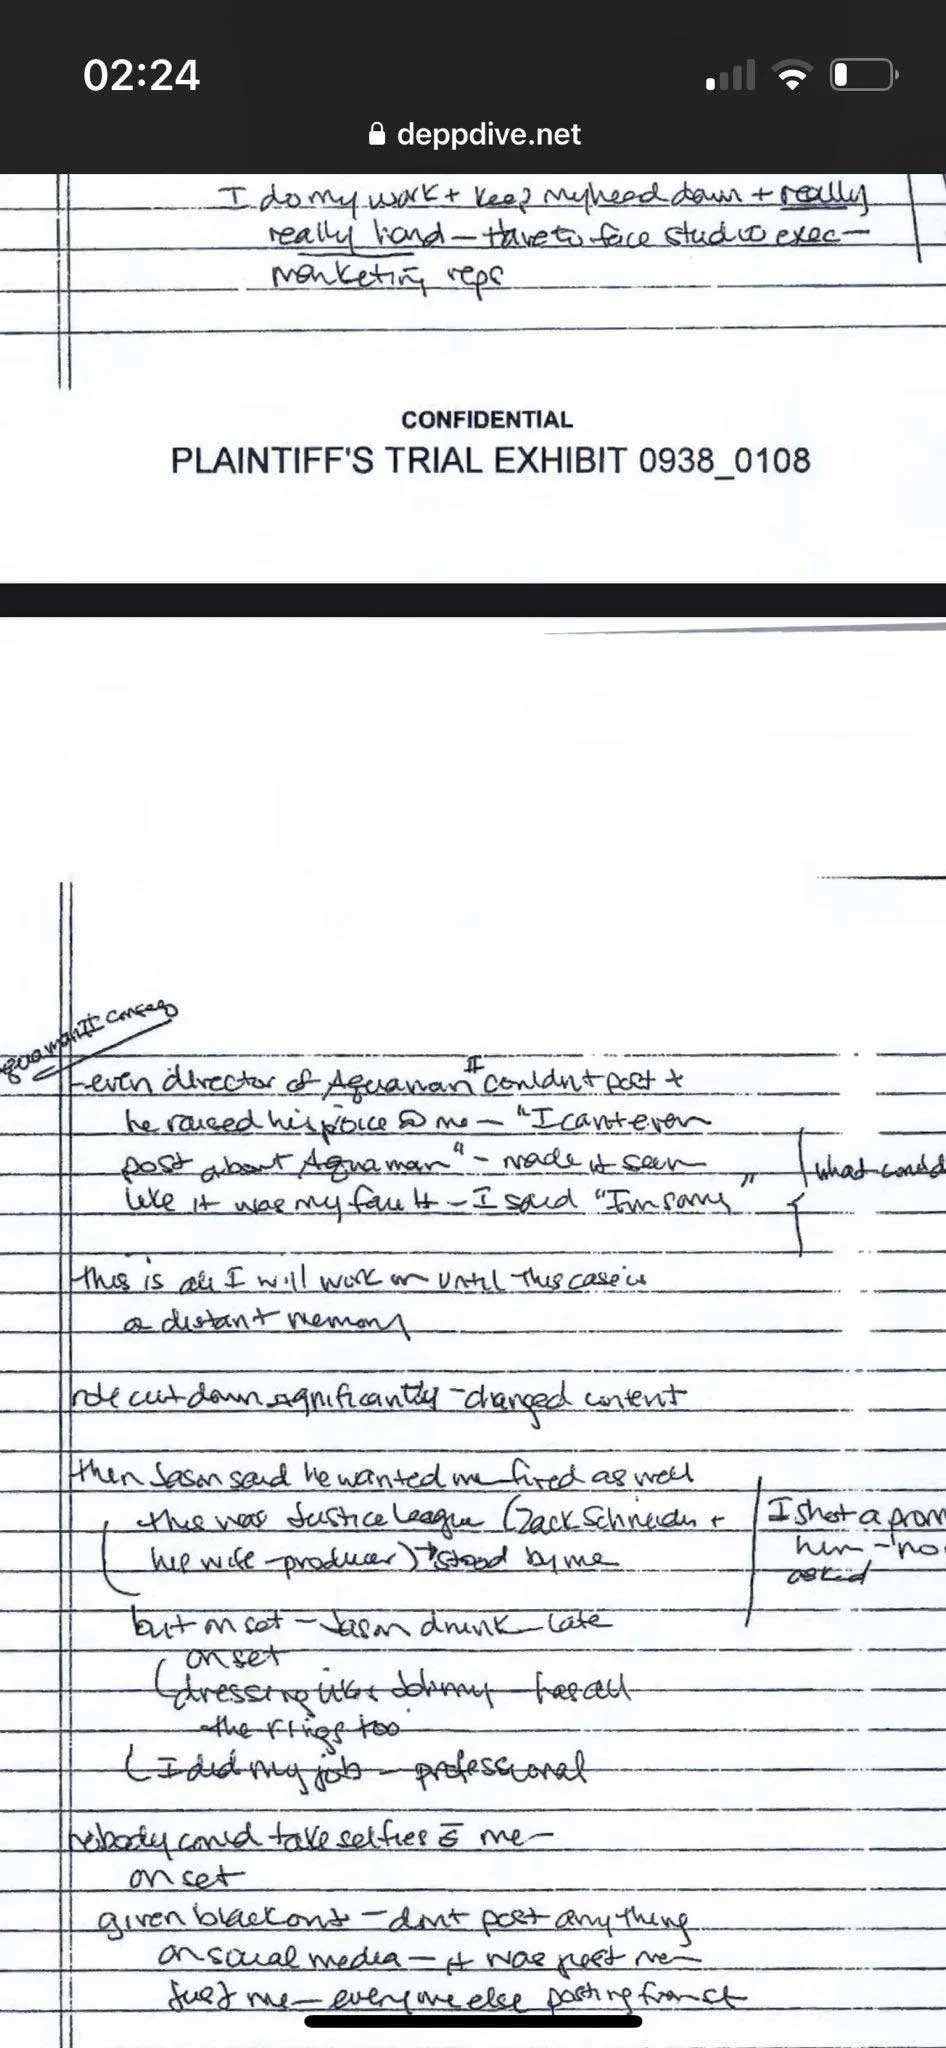 02:24
deppdive.net
I do my work + keep my head down + really
really hard - have to face studio exec -
marketing reps
CONFIDENTIAL
PLAINTIFF'S TRIAL EXHIBIT 0938_0108
quaman II conseq
- even director of Aquaman II couldn't post +
he raised his voice @ me - "I can't even
post about Aquaman" - made it seem
like it was my fault - I said "I'm sorry"
what could
this is all I will work on until this case is
a distant memory
role cut down significantly - changed content
then Jason said he wanted me fired as well
this was Justice League (Zack Schneider +
his wife - producer) → stood by me
I shot a prom
him - no
asked
but on set - Jason drunk - late
on set
(dressing like Johnny - has all
the rings too
(I did my job - professional
nobody could take selfies c̄ me -
on set
given blackout - don't post anything
on social media - it was just me -
just me - everyone else posting from set